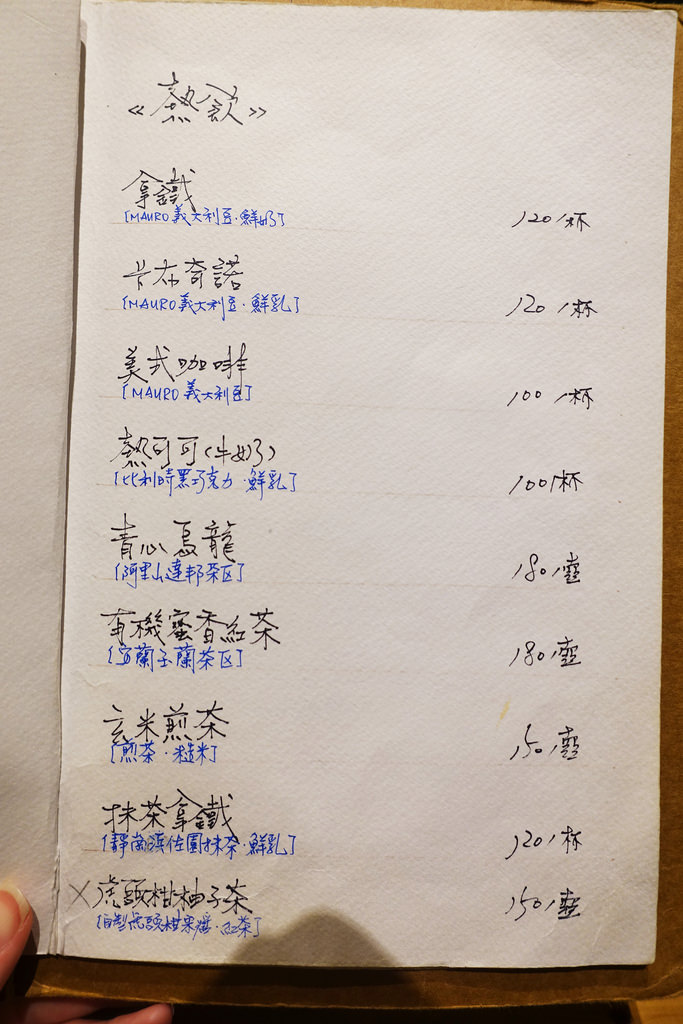 《熱飲》
拿鐵
[MAURO義大利豆·鮮奶]
120/杯
卡布奇諾
[MAURO義大利豆·鮮乳]
120/杯
美式咖啡
[MAURO義大利豆]
100/杯
熱可可(牛奶)
[比利時黑巧克力·鮮乳]
100/杯
青心烏龍
[阿里山達邦茶区]
180/壺
有機蜜香紅茶
[宜蘭玉蘭茶区]
180/壺
玄米煎茶
[煎茶·糙米]
150/壺
抹茶拿鐵
[靜岡濱佐園抹茶·鮮乳]
120/杯
X虎頭柑柚子茶
[自製虎頭柑果醬·紅茶]
150/壺